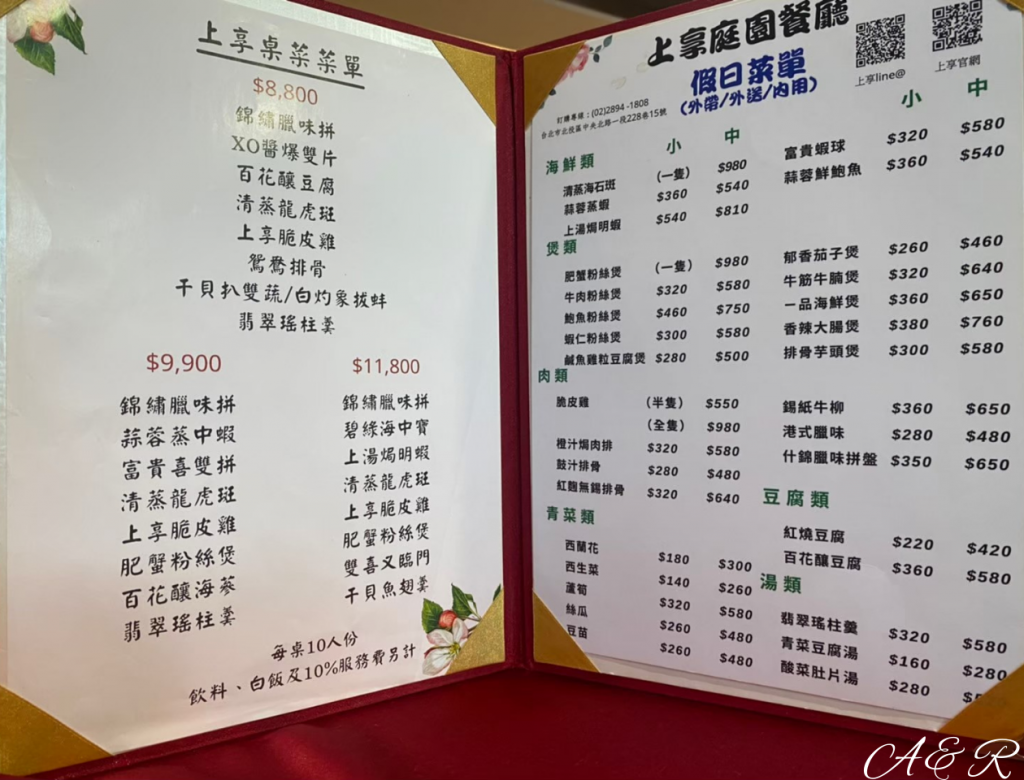 上享桌菜菜單
$8,800
錦繡臘味拼
XO醬爆雙片
百花釀豆腐
清蒸龍虎斑
上享脆皮雞
鴛鴦排骨
干貝扒雙蔬/白灼象拔蚌
翡翠瑤柱羹
$9,900
錦繡臘味拼
蒜蓉蒸中蝦
富貴喜雙拼
清蒸龍虎斑
上享脆皮雞
肥蟹粉絲煲
百花釀海蔘
翡翠瑤柱羹
$11,800
錦繡臘味拼
碧綠海中寶
上湯焗明蝦
清蒸龍虎斑
上享脆皮雞
肥蟹粉絲煲
雙喜又臨門
干貝魚翅羹
每桌10人份
飲料、白飯及10%服務費另計
上享庭園餐廳
假日菜單
(外帶/外送/內用)
上享line@
上享官網
訂購專線：(02)2894-1808
台北市北投區中央北路一段228巷15號
海鮮類 小 中
清蒸海石斑 (一隻) $980
蒜蓉蒸蝦 $360 $540
上湯焗明蝦 $540 $810
煲類
肥蟹粉絲煲 (一隻) $980
牛肉粉絲煲 $320 $580
鮑魚粉絲煲 $460 $750
蝦仁粉絲煲 $300 $580
鹹魚雞粒豆腐煲 $280 $500
肉類
脆皮雞 (半隻) $550
(全隻) $980
橙汁焗肉排 $320 $580
鼓汁排骨 $280 $480
紅麴無錫排骨 $320 $640
青菜類
西蘭花 $180 $300
西生菜 $140 $260
蘆筍 $320 $580
絲瓜 $260 $480
豆苗 $260 $480
小 中
富貴蝦球 $320 $580
蒜蓉鮮鮑魚 $360 $540
郁香茄子煲 $260 $460
牛筋牛腩煲 $320 $640
一品海鮮煲 $360 $650
香辣大腸煲 $380 $760
排骨芋頭煲 $300 $580
錫紙牛柳 $360 $650
港式臘味 $280 $480
什錦臘味拼盤 $350 $650
豆腐類
紅燒豆腐 $220 $420
百花釀豆腐 $360 $580
湯類
翡翠瑤柱羹 $320 $580
青菜豆腐湯 $160 $280
酸菜肚片湯 $280
A & R